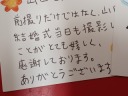 前撮りだけではなく、
結婚式当日も撮影し
ことがとても嬉しく、
感謝しております。
ありがとうございます